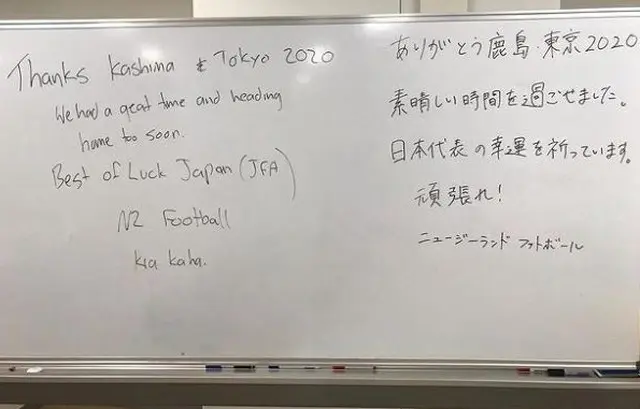 Thanks Kashima & Tokyo 2020
We had a geat time and heading
home too soon.
Best of Luck Japan (JFA)
NZ Football
kia kaha.
ありがとう鹿島・東京2020
素晴しい時間を過ごせました。
日本代表の幸運を祈っています。
頑張れ!
ニュージーランド フットボール